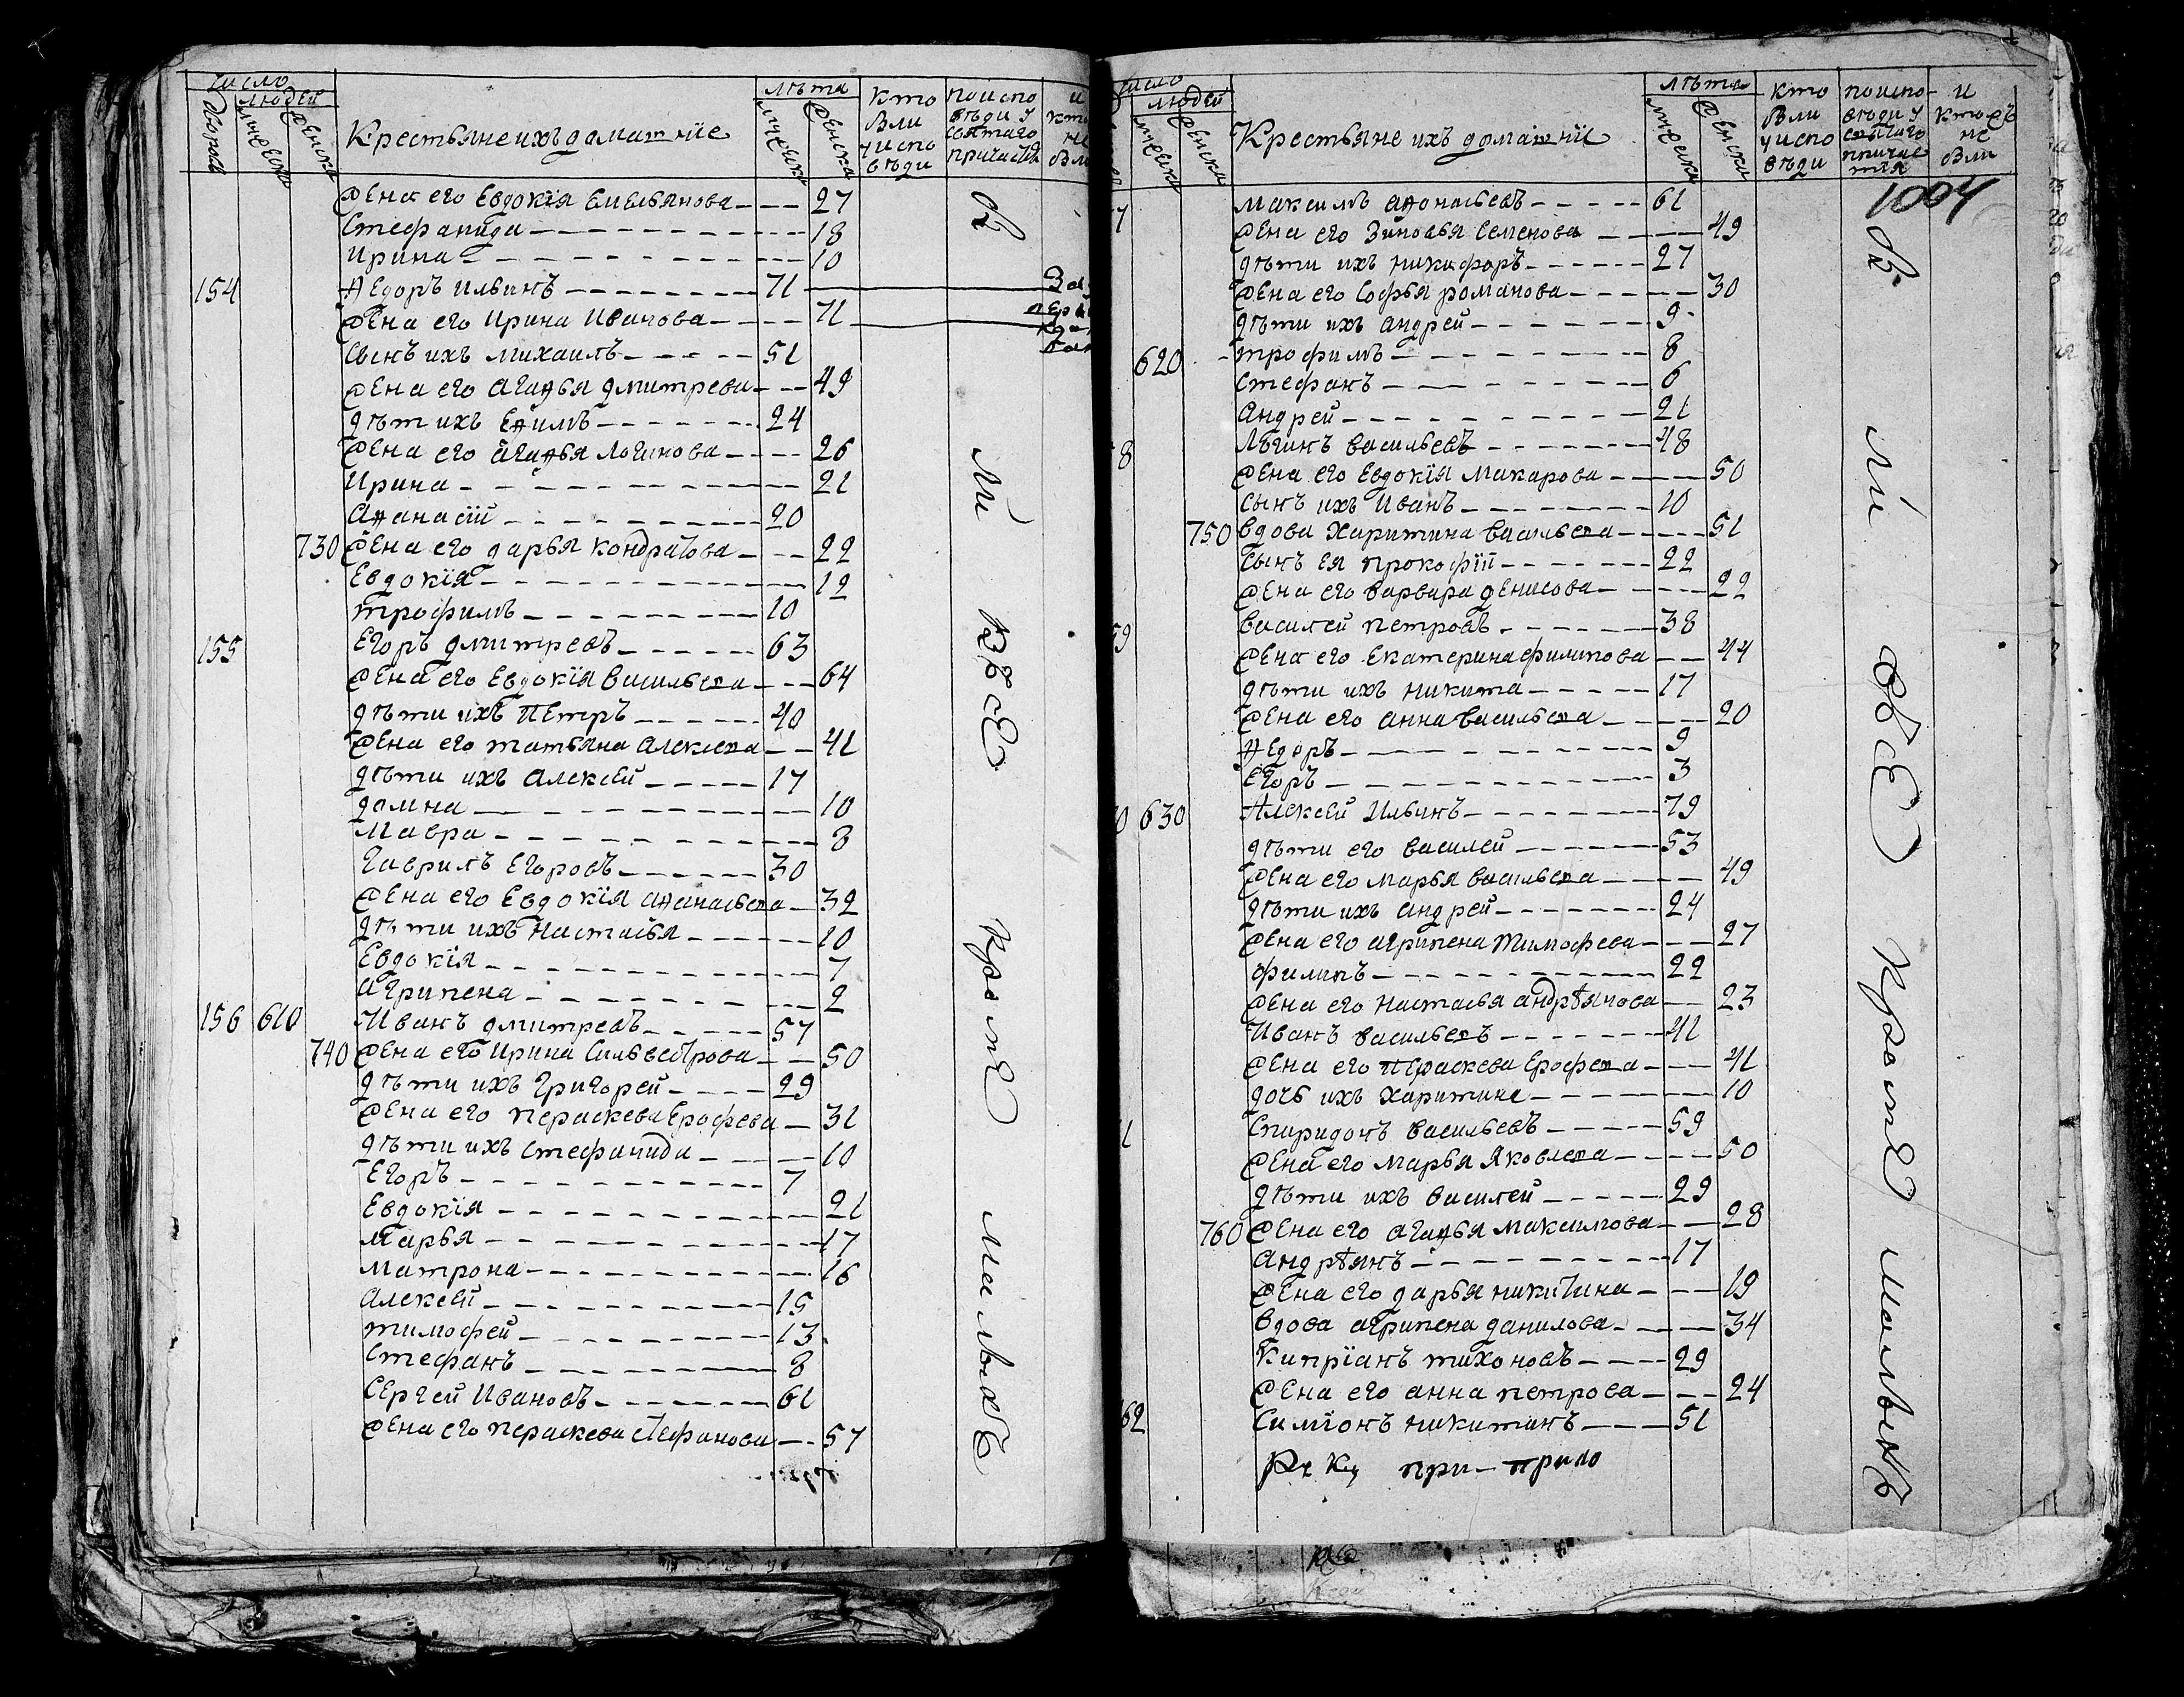 число
людей
двора
мужеска
женска
Крестьяне ихъ домашнїе
лѣта
мужеска
женска
кто
были
у испо
вѣди
поиспо
вѣди у
святаго
причастїя
и
кто
не
были
жена его Евдокїя Емельянова 27
Стефанида 18
Ирина 10
154 Ѳедоръ Ильинъ 71
жена его Ирина Иванова 71
сынъ ихъ михаилъ 51
жена его агаѳья дмитрева 49
дѣти ихъ Еѳимъ 24
жена его агаѳья Логинова 26
Ирина 21
аѳанасїй 20
730 жена его дарья кондратова 22
Евдокїя 12
трофимъ 10
155 Егоръ дмитревъ 63
жена его Евдокїя васильева 64
дѣти ихъ Петръ 40
жена его татьяна алексева 41
дѣти ихъ алексей 17
домна 10
мавра 8
Гаврилъ Егоровъ 30
жена его Евдокїя аѳанасьева 32
дѣти ихъ настасья 10
Евдокїя 7
агрипена 2
156 610 Иванъ дмитревъ 57
740 жена его Ирина Сильвестрова 50
дѣти ихъ григорей 29
жена его пераскева Ерофеева 31
дѣти ихъ стефанида 10
Егоръ 7
Евдокїя 21
марья 17
матрона 16
алексей 15
тимофей 13
Стефанъ 8
Сергей Ивановъ 61
жена его пераскева стефанова 57
Б
ЛИ
ВСѢ
кромѣ
малыхъ
число
людей
мужеска
женска
Крестьяне ихъ домашнїе
лѣта
мужеска
женска
кто
были
у испо
вѣди
поиспо-
вѣди у
святаго
причас
тїя
и
ктожъ
не
были
1004
7 максимъ аѳонасьевъ 61
жена его Зиновья Семенова 49
дѣти ихъ никифоръ 27
жена его Софья романова 30
дѣти ихъ андрей 9
620 трофимъ 8
стефанъ 6
андрей 21
8 Логинъ васильевъ 48
жена его Евдокїя макарова 50
сынъ ихъ Иванъ 10
750 вдова Харитина васильева 51
сынъ ея прокофїй 22
жена его варвара денисова 22
59 василей петровъ 38
жена его Екатерина филипова 44
дѣти ихъ никита 17
жена его анна васильева 20
Ѳедоръ 9
Егоръ 3
0 630 алексей Ильинъ 79
дѣти его василей 53
жена его марья васильева 49
дѣти ихъ андрей 24
жена его агрипена тимофеева 27
филипъ 22
жена его настасья андрѣянова 23
Иванъ васильевъ 41
жена его пераскева Ерофеева 41
дочь ихъ харитина 10
1 Спиридонъ васильевъ 59
жена его марья яковлева 50
дѣти ихъ василей 29
760 жена его агаѳья максимова 28
андрѣянъ 17
жена его дарья никитина 19
вдова агрипена данилова 34
Кипрїанъ тихоновъ 29
жена его анна петрова 24
62 Симїонъ никитинъ 51
Б
ЛИ
ВСѢ
кромѣ
малыхъ